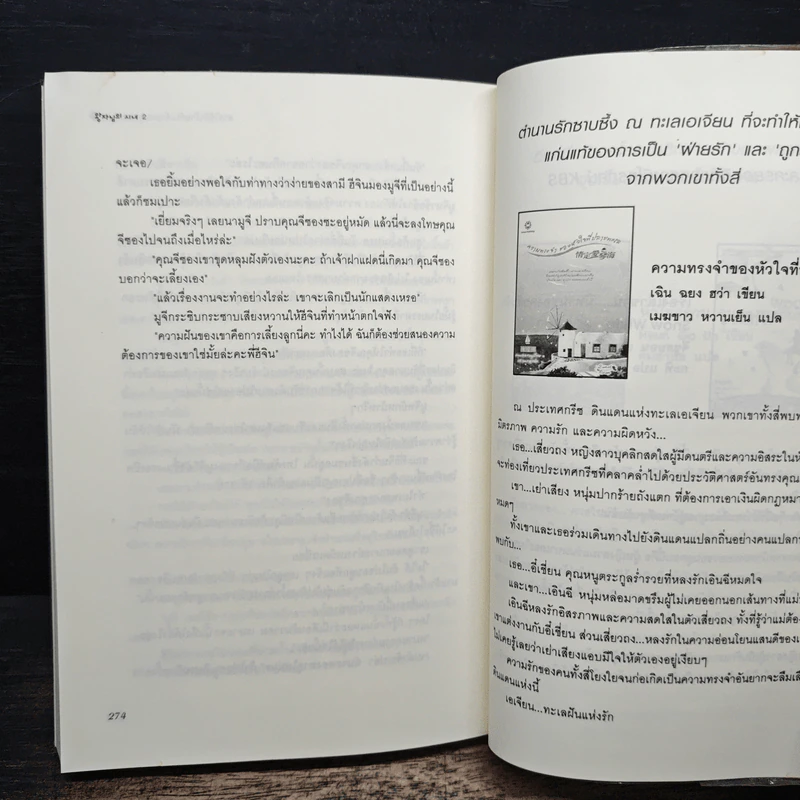 2
จะเจอ/
เธอยิ้มอย่างพอใจกับท่าทางว่าง่ายของสามี ฮีจินมองมูจีที่เป็นอย่างนี้
แล้วก็ชมเปาะ
"เยี่ยมจริงๆ เลยนามูจี ปราบคุณจีซองซะอยู่หมัด แล้วนี่จะลงโทษคุณ
จีซองไปจนถึงเมื่อไหร่ล่ะ"
"คุณจีซองเขาขุดหลุมฝังตัวเองนะคะ ถ้าเจ้าฝาแฝดนี่เกิดมา คุณจีซอง
บอกว่าจะเลี้ยงเอง"
"แล้วเรื่องงานจะทำอย่างไรล่ะ เขาจะเลิกเป็นนักแสดงเหรอ"
มูจีกระซิบกระซาบเสียงหวานให้ฮีจินที่ทำหน้าตกใจฟัง
"ความฝันของเขาคือการเลี้ยงลูกนี่คะ ทำไงได้ ฉันก็ต้องช่วยสนองความ
ต้องการของเขาใช่มั้ยล่ะคะพี่ฮีจิน"
274
ตำนานรักซาบซึ้ง ณ ทะเลเอเจียน ที่จะทำให้
แก่นแท้ของการเป็น 'ฝ่ายรัก' และ 'ถูก
จากพวกเขาทั้งสี่
ความทรงจำของหัวใจที่
เฉิน ฉยง ฮว่า เขียน
เมฆขาว หวานเย็น แปล
ณ ประเทศกรีซ ดินแดนแห่งทะเลเอเจียน พวกเขาทั้งสี่พบ
มิตรภาพ ความรัก และความผิดหวัง...
เธอ...เสี่ยวถง หญิงสาวบุคลิกสดใสผู้มีดนตรีและความอิสระใน
จะท่องเที่ยวประเทศกรีซที่คลาคล่ำไปด้วยประวัติศาสตร์อันทรงคุณ
เขา...เย่าเสียง หนุ่มปากร้ายถังแตก ที่ต้องการเอาเงินผิดกฎหมา
หมดๆ
ทั้งเขาและเธอร่วมเดินทางไปยังดินแดนแปลกถิ่นอย่างคนแปลก
พบกับ...
เธอ...อี๋เชี่ยน คุณหนูตระกูลร่ำรวยที่หลงรักเอินฉีหมดใจ
และเขา...เอินฉี หนุ่มหล่อมาดขรึมผู้ไม่เคยออกนอกเส้นทางที่แม่
เอินฉีหลงรักอิสรภาพและความสดใสในตัวเสี่ยวถง ทั้งที่รู้ว่าแม่ต้อง
เขาแต่งงานกับอี๋เชี่ยน ส่วนเสี่ยวถง...หลงรักในความอ่อนโยนแสนดีของเ
ไม่เคยรู้เลยว่าเย่าเสียงแอบมีใจให้ตัวเองอยู่เงียบๆ
ความรักของคนทั้งสี่โยงใยจนก่อเกิดเป็นความทรงจำอันยากจะลืมเลื
ดินแดนแห่งนี้
เอเจียน...ทะเลฝันแห่งรัก